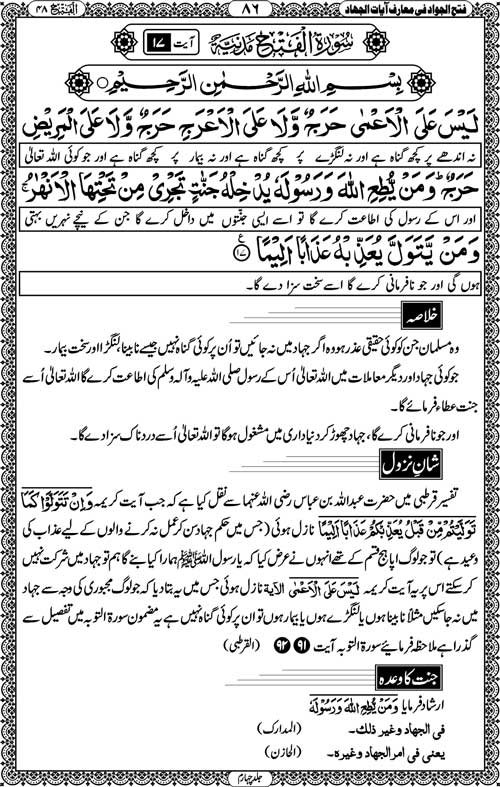 فتح الجواد فی معارف آیات الجهاد
۸۶
الفتح ۴۸
سورۃ الفتح مدنیۃ
آیت ۱۷
بسم اللہ الرحمن الرحیم
لَيْسَ عَلَى الْاَعْمٰى حَرَجٌ وَّلَا عَلَى الْاَعْرَجِ حَرَجٌ وَّلَا عَلَى الْمَرِيْضِ
نہ اندھے پر کچھ گناہ ہے اور نہ لنگڑے پر کچھ گناہ ہے اور نہ بیمار پر کچھ گناہ ہے اور جو کوئی اللہ تعالیٰ
حَرَجٌ ؕ وَمَنْ يُّطِعِ اللّٰهَ وَرَسُوْلَهٗ يُدْخِلْهُ جَنّٰتٍ تَجْرِيْ مِنْ تَحْتِهَا الْاَنْهٰرُ ۚ
اور اس کے رسول کی اطاعت کرے گا تو اسے ایسی جنتوں میں داخل کرے گا جن کے نیچے نہریں بہتی
وَمَنْ يَّتَوَلَّ يُعَذِّبْهُ عَذَابًا اَلِيْمًا ﴿۱۷﴾
ہوں گی اور جو نافرمانی کرے گا اسے سخت سزا دے گا۔
خلاصہ
وہ مسلمان جن کو کوئی حقیقی عذر ہو وہ اگر جہاد میں نہ جائیں تو اُن پر کوئی گناہ نہیں جیسے نابینا، لنگڑا اور سخت بیمار۔
جو کوئی جہاد اور دیگر معاملات میں اللہ تعالیٰ اُس کے رسول صلی اللہ علیہ وآلہ وسلم کی اطاعت کرے گا اللہ تعالیٰ اُسے
جنت عطاء فرمائے گا۔
اور جو نافرمانی کرے گا، جہاد چھوڑ کر دنیا داری میں مشغول ہوگا تو اللہ تعالیٰ اُسے دردناک سزا دے گا۔
شانِ نزول
تفسیر قرطبی میں حضرت عبداللہ بن عباس رضی اللہ عنہما سے نقل کیا ہے کہ جب آیت کریمہ وَاِنْ تَتَوَلَّوْا كَمَا
تَوَلَّيْتُمْ مِّنْ قَبْلُ يُعَذِّبْكُمْ عَذَابًا اَلِيْمًا نازل ہوئی (جس میں حکم جہاد سن کر عمل نہ کرنے والوں کے لیے عذاب کی
وعید ہے) تو جو لوگ اپاہج قسم کے تھے انہوں نے عرض کیا کہ یا رسول اللہ ﷺ ہمارا کیا بنے گا ہم تو جہاد میں شرکت نہیں
کر سکتے اس پر یہ آیت کریمہ لَيْسَ عَلَى الْاَعْمٰى الآیۃ نازل ہوئی جس میں یہ بتا دیا کہ جو لوگ مجبوری کی وجہ سے جہاد
میں نہ جاسکیں مثلاً نابینا ہوں یا لنگڑے ہوں یا بیمار ہوں تو ان پر کوئی گناہ نہیں ہے یہ مضمون سورۃ التوبہ میں تفصیل سے
گذرا ہے ملاحظہ فرمائیے سورۃ التوبہ آیت ۹۱ ۹۲ (القرطبی)
جنت کا وعدہ
ارشاد فرمایا وَمَنْ يُّطِعِ اللّٰهَ وَرَسُوْلَهٗ
فی الجهاد وغیر ذلک۔ (المدارک)
یعنی فی امر الجهاد وغیرہ۔ (الخازن)
جلد چہارم